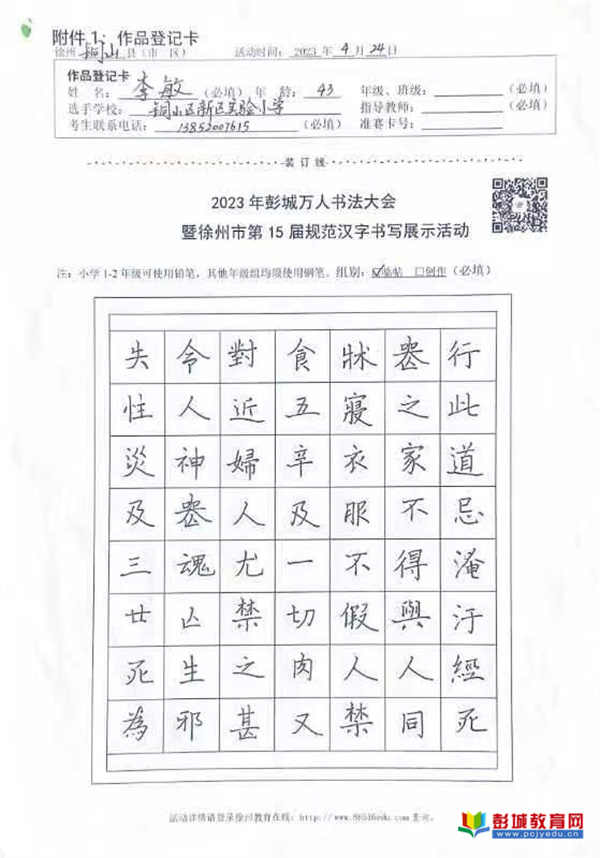 附件 1：作品登记卡
徐州 铜山 县（市 区） 活动时间：2023 年 4 月 24 日
作品登记卡
姓 名： 李敏 （必填） 年 龄： 43 年级、班级： （必填）
选手学校： 铜山区新区实验小学 指导教师： （必填）
考生联系电话： 13852007615 （必填） 准赛卡号：
装 订 线
2023 年彭城万人书法大会
暨徐州市第 15 届规范汉字书写展示活动
注：小学 1-2 年级可使用铅笔，其他年级组均须使用钢笔。组别：☑临帖 □创作（必填）
行此道忌淹汙經死
喪之家不得與人同
牀寢衣服不假人禁
食五辛及一切肉又
對近婦人尤禁之甚
令人神喪魂亾生邪
失性災及三世死為
活动详情请登录徐州教育在线：http://www.86516edu.com 查询。
彭城教育网
www.pcjyedu.cn